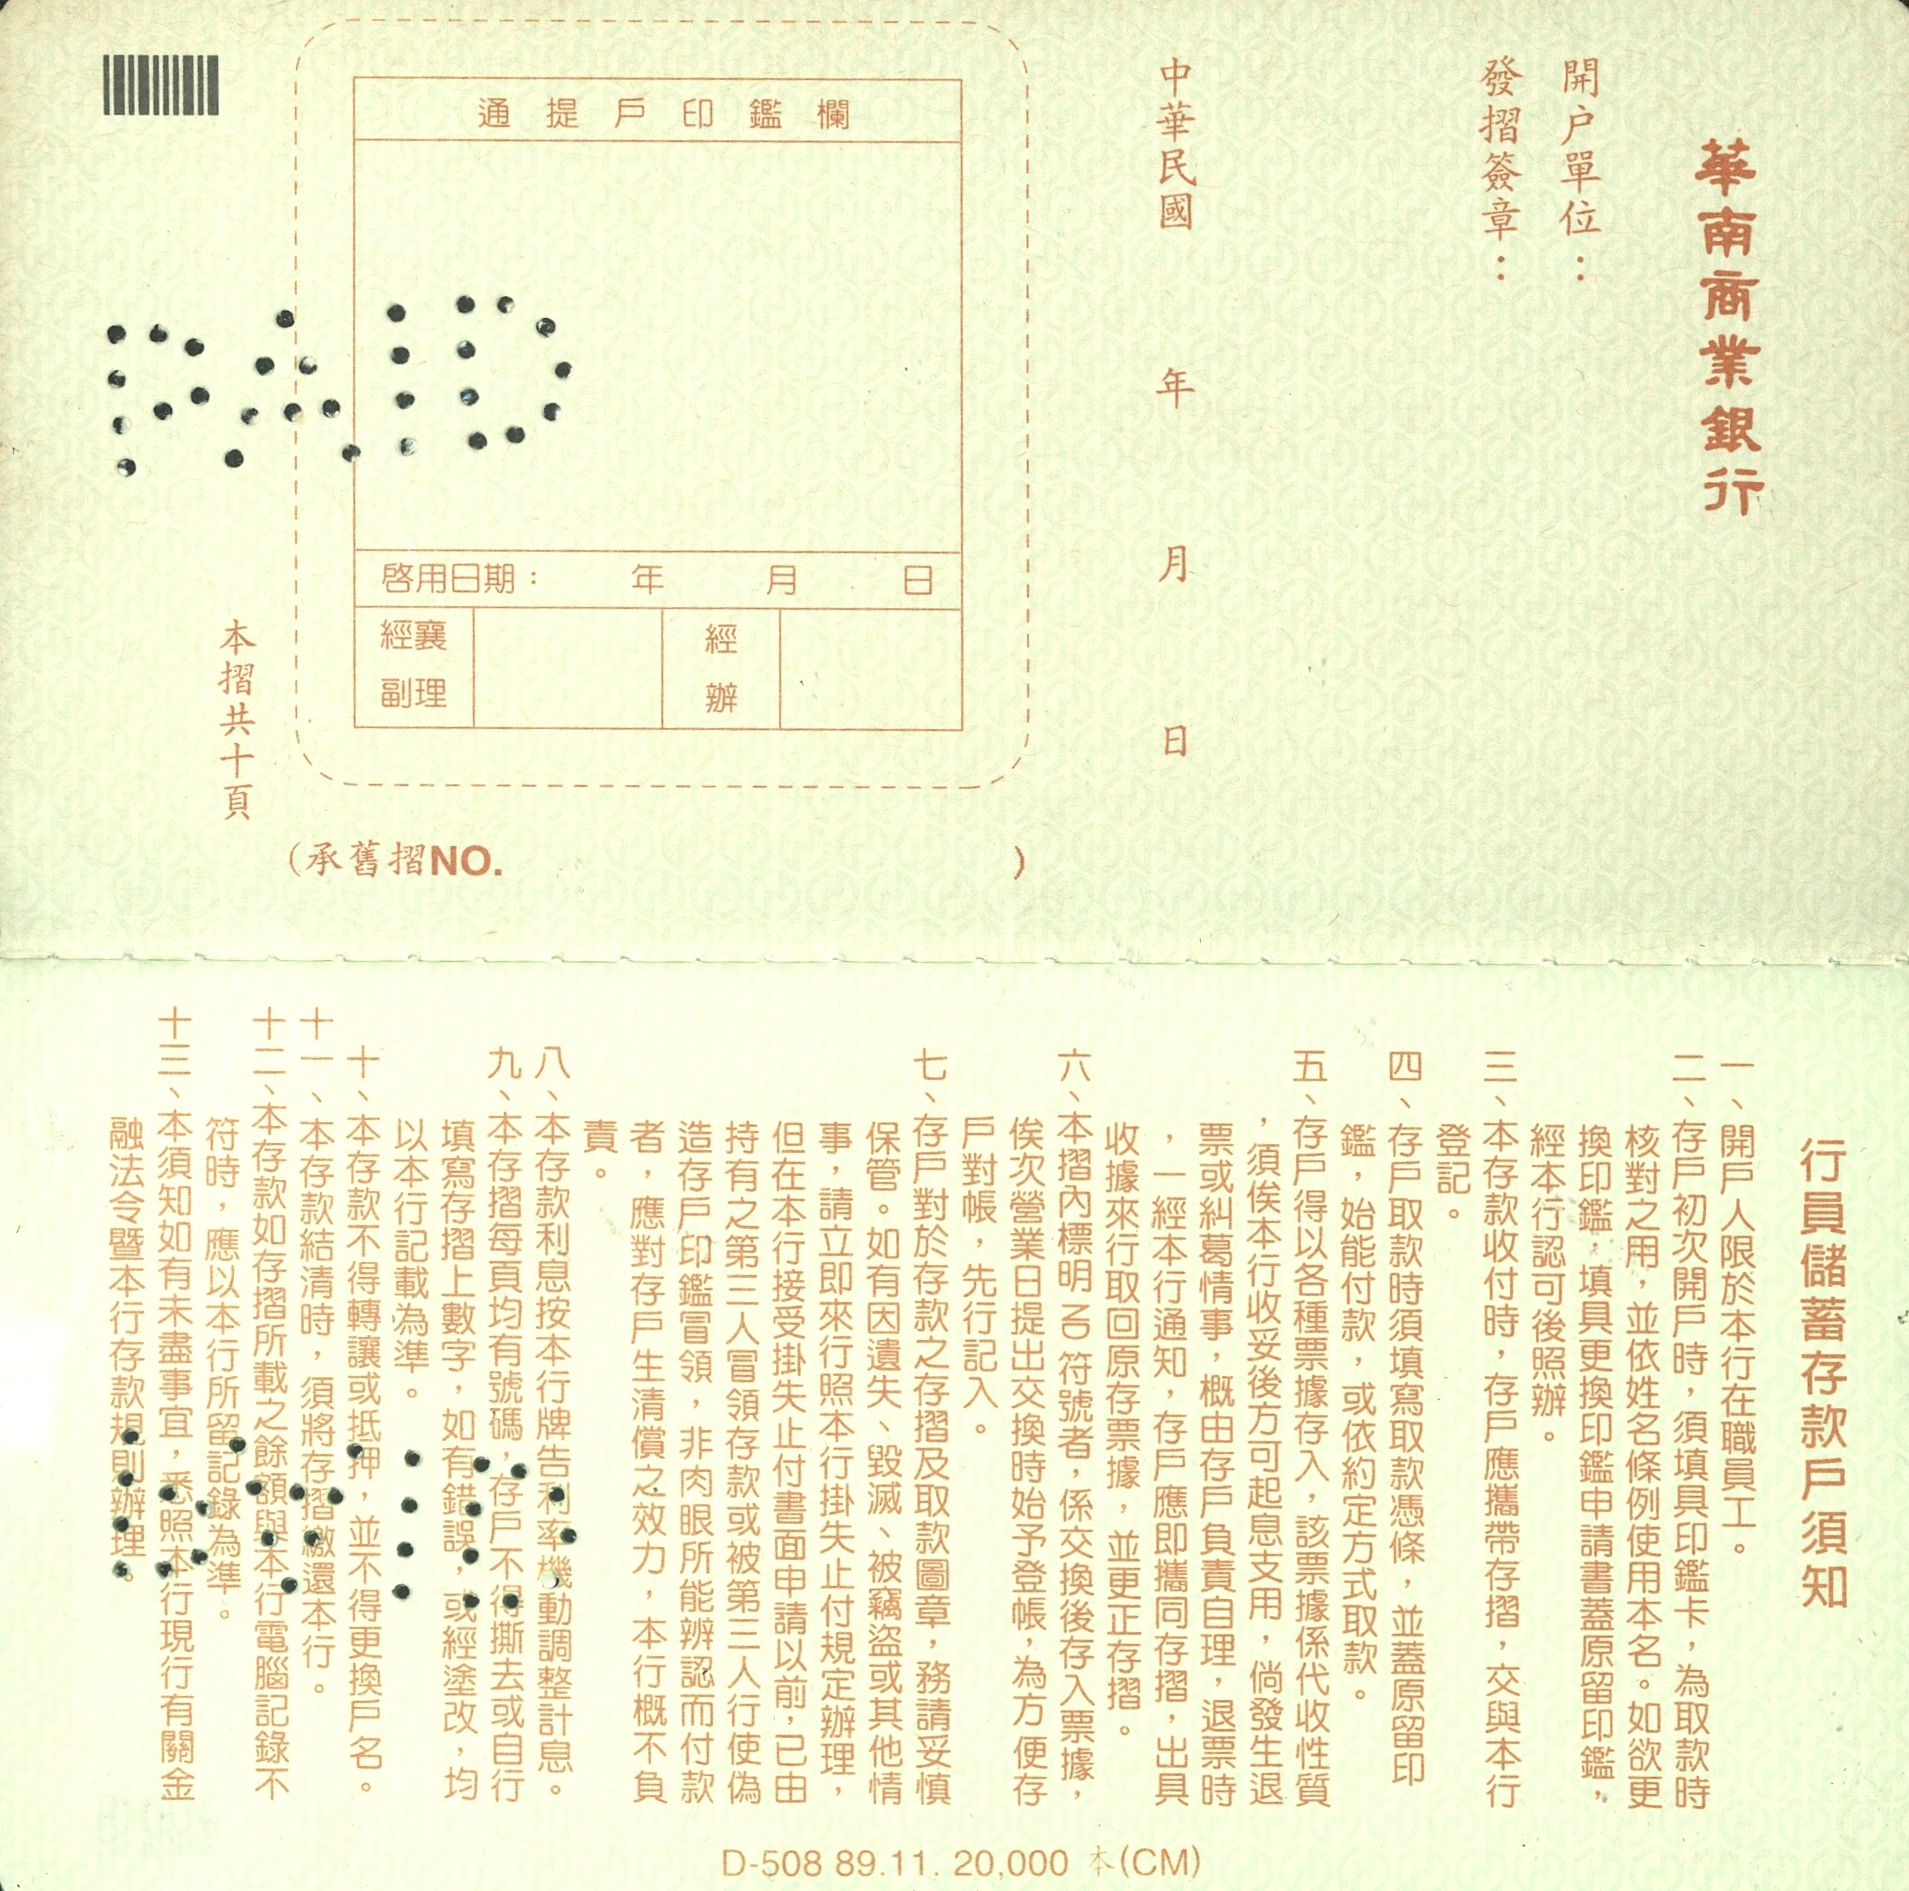 華南商業銀行
開户單位：
發摺簽章：
中華民國　年　月　日
通提戶印鑑欄
啓用日期：　年　月　日
經襄副理
經辦
本摺共十頁
(承舊摺NO.　)
PAID
行員儲蓄存款戶須知
一、開戶人限於本行在職員工。
二、存戶初次開戶時，須填具印鑑卡，為取款時
核對之用，並依姓名條例使用本名。如欲更
換印鑑，填具更換印鑑申請書蓋原留印鑑，
經本行認可後照辦。
三、本存款收付時，存戶應攜帶存摺，交與本行
登記。
四、存戶取款時須填寫取款憑條，並蓋原留印
鑑，始能付款，或依約定方式取款。
五、存戶得以各種票據存入，該票據係代收性質
，須俟本行收妥後方可起息支用，倘發生退
票或糾葛情事，概由存戶負責自理，退票時
，一經本行通知，存戶應即攜同存摺，出具
收據來行取回原存票據，並更正存摺。
六、本摺內標明 符號者，係交換後存入票據，
俟次營業日提出交換時始予登帳，為方便存
戶對帳，先行記入。
七、存戶對於存款之存摺及取款圖章，務請妥慎
保管。如有因遺失、毀滅、被竊盜或其他情
事，請立即來行照本行掛失止付規定辦理，
但在本行接受掛失止付書面申請以前，已由
持有之第三人冒領存款或被第三人行使偽
造存戶印鑑冒領，非肉眼所能辨認而付款
者，應對存戶生清償之效力，本行概不負
責。
八、本存款利息按本行牌告利率機動調整計息。
九、本存摺每頁均有號碼，存戶不得撕去或自行
填寫存摺上數字，如有錯誤，或經塗改，均
以本行記載為準。
十、本存款不得轉讓或抵押，並不得更換戶名。
十一、本存款結清時，須將存摺繳還本行。
十二、本存款如存摺所載之餘額與本行電腦記錄不
符時，應以本行所留記錄為準。
十三、本須知如有未盡事宜，悉照本行現行有關金
融法令暨本行存款規則辦理。
D-508 89.11. 20,000 本(CM)